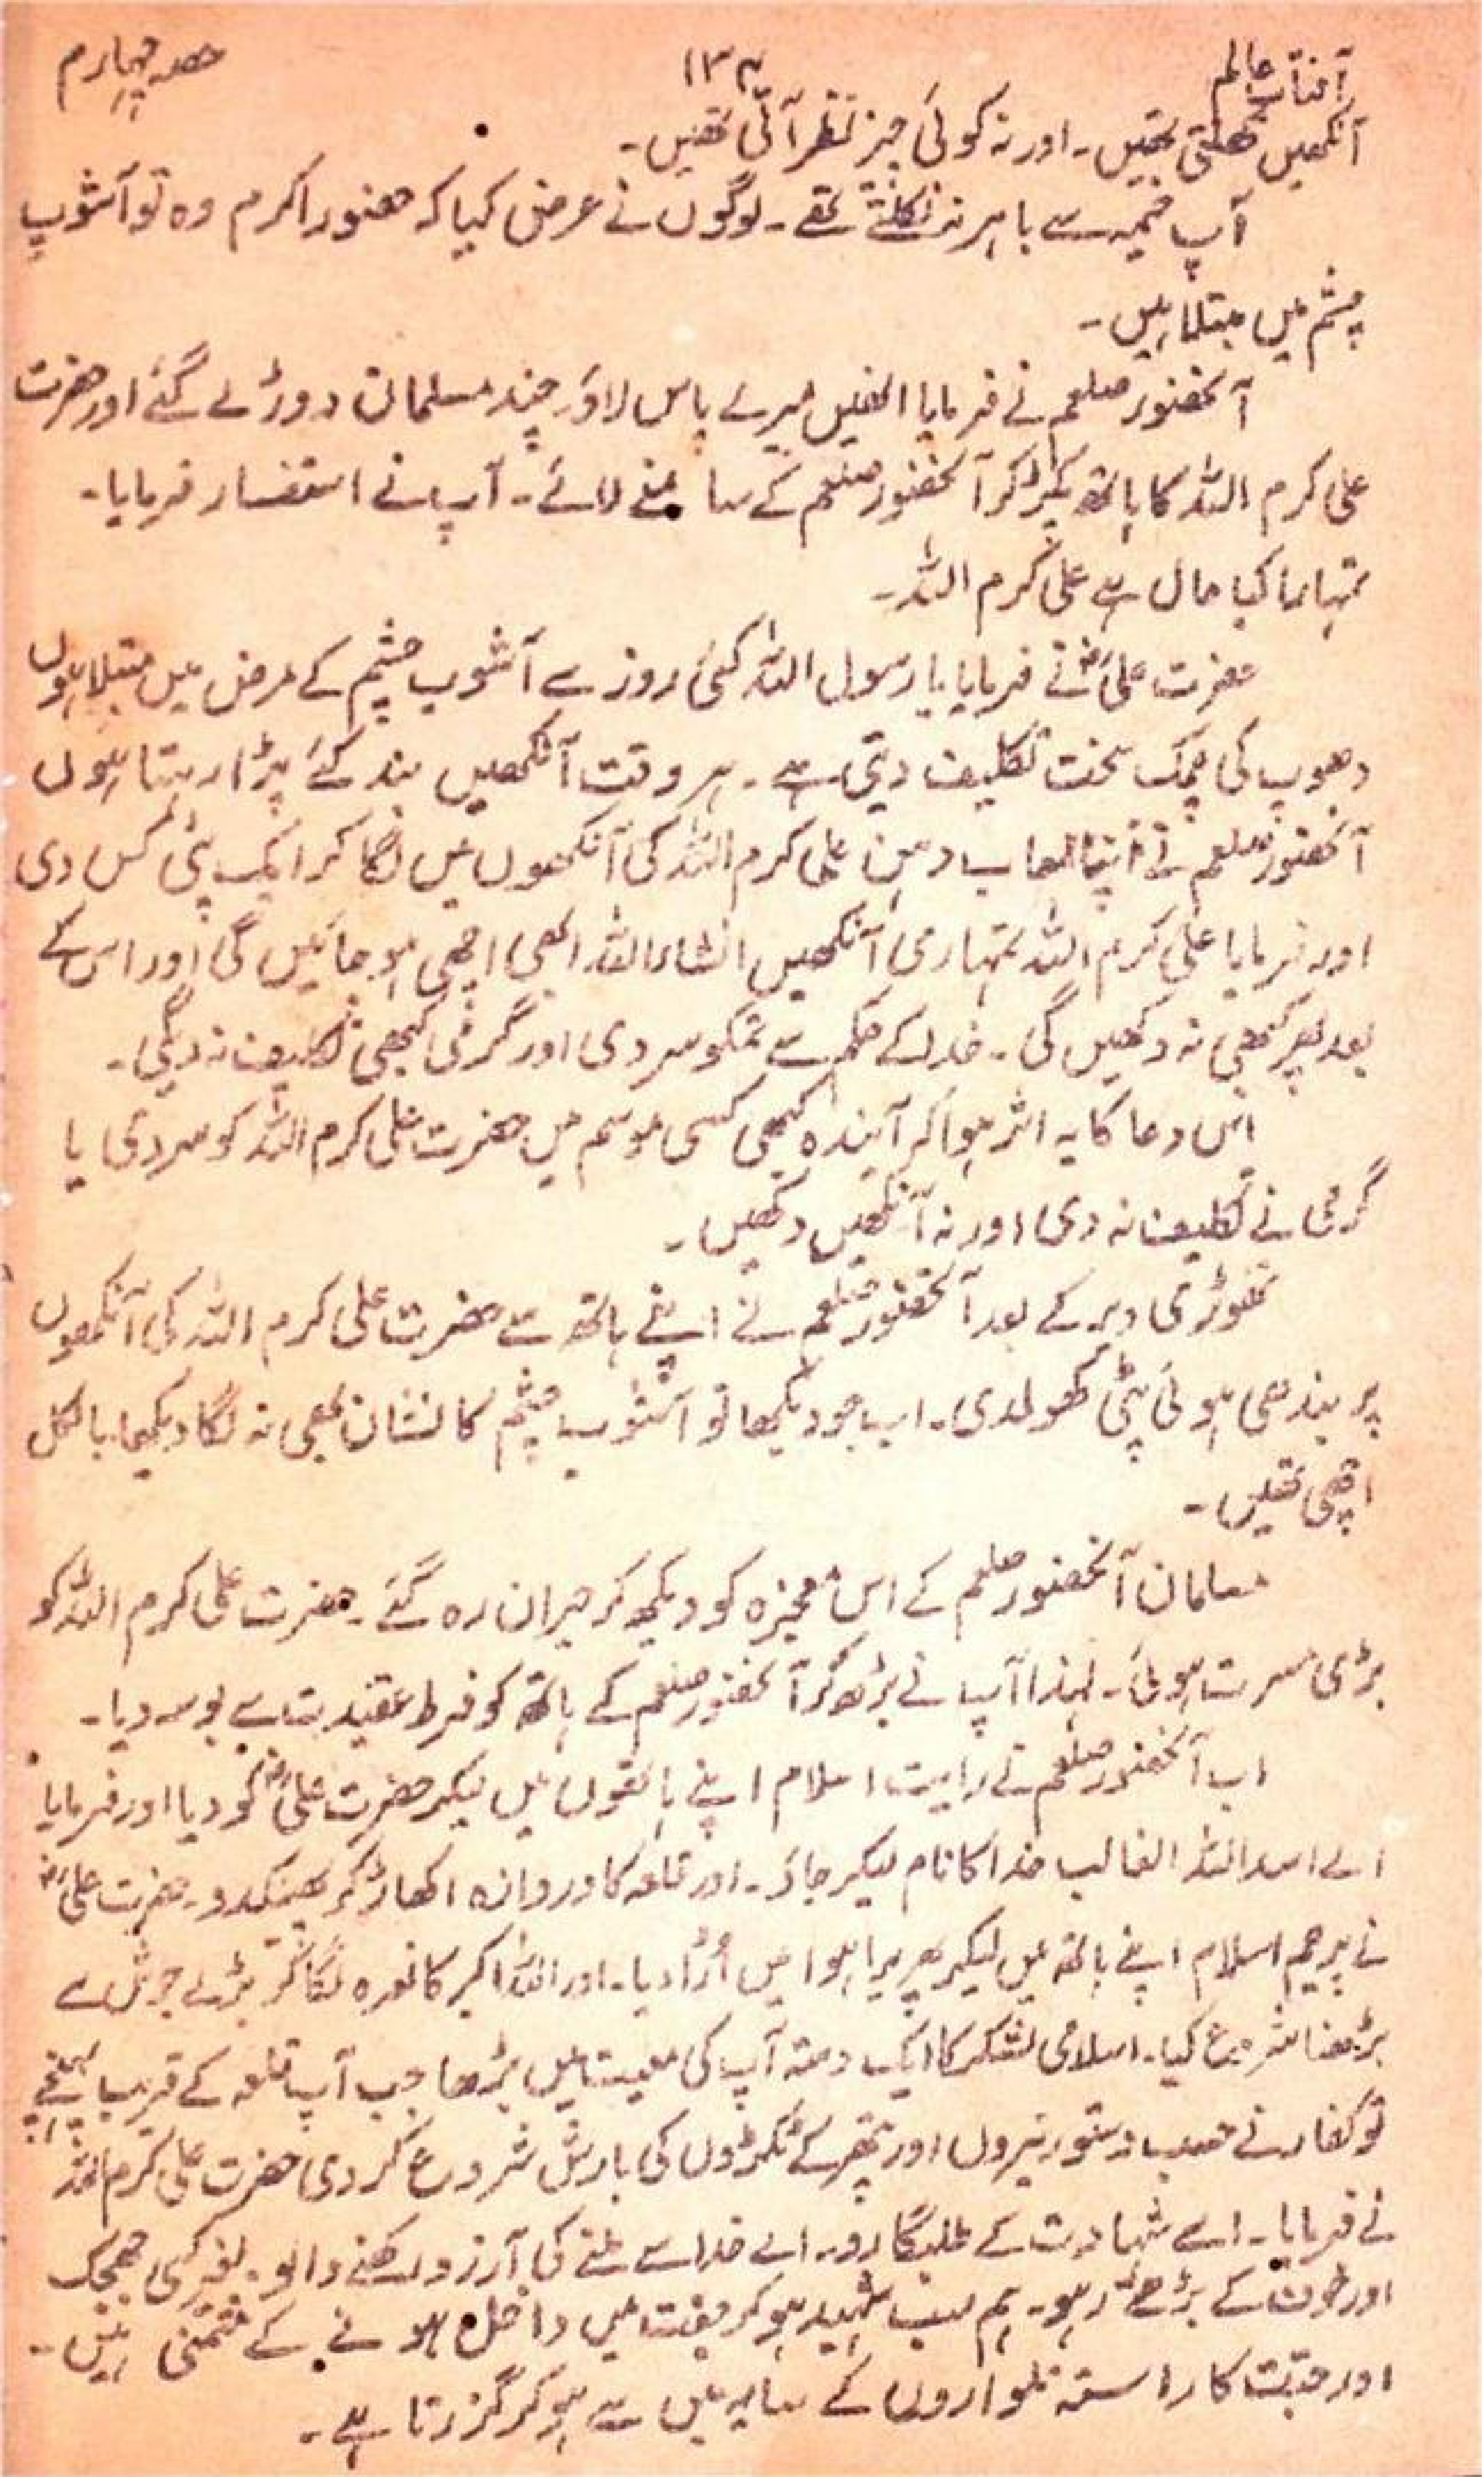 آفتاب عالم ۱۳۴ حصہ چہارم
آنکھیں کھلتی تھیں۔ اور نہ کوئی چیز نظر آتی تھیں۔
آپ خیمہ سے باہر نہ نکلتے تھے۔ لوگوں نے عرض کیا کہ حضور اکرم وہ تو آشوبِ
چشم میں مبتلا ہیں۔
آنحضور صلعم نے فرمایا انھیں میرے پاس لاؤ۔ چند مسلمان دوڑے گئے اور حضرت
علی کرم اللہ کا ہاتھ پکڑ کر آنحضور صلعم کے سامنے لائے۔ آپ نے استفسار فرمایا۔
تمہارا کیا حال ہے علی کرم اللہ۔
حضرت علیؓ نے فرمایا یا رسول اللہ کئی روز سے آشوب چشم کے مرض میں مبتلا ہوں
دھوپ کی چمک سخت تکلیف دیتی ہے۔ ہر وقت آنکھیں بند کئے پڑا رہتا ہوں
آنحضور صلعم نے اپنا لعاب دہن علی کرم اللہ کی آنکھوں میں لگا کر ایک پٹی کس دی
اور فرمایا علی کرم اللہ تمہاری آنکھیں انشاء اللہ ابھی اچھی ہو جائیں گی اور اس کے
بعد پھر کبھی نہ دکھیں گی۔ خدا کے حکم سے تمکو سردی اور گرمی کبھی تکلیف نہ دیگی۔
اس دعا کا یہ اثر ہوا کہ آیندہ کبھی کسی موسم میں حضرت علی کرم اللہ کو سردی یا
گرمی نے تکلیف نہ دی اور نہ آنکھیں دکھیں۔
تھوڑی دیر کے بعد آنحضور صلعم نے اپنے ہاتھ سے حضرت علی کرم اللہ کی آنکھوں
پر بندھی ہوئی پٹی کھولدی۔ اب جو دیکھا تو آشوب چشم کا نشان بھی نہ لگا دیکھا۔ بالکل
اچھی تھیں۔
مسلمان آنحضور صلعم کے اس معجزہ کو دیکھ کر حیران رہ گئے۔ حضرت علی کرم اللہ کو
بڑی مسرت ہوئی۔ لہذا آپ نے بڑھ کر آنحضور صلعم کے ہاتھ کو فرط عقیدت سے بوسہ دیا۔
اب آنحضور صلعم نے رایت اسلام اپنے ہاتھوں میں لیکر حضرت علیؓ کو دیا اور فرمایا
اے اسد اللہ الغالب خدا کا نام لیکر جاؤ۔ اور قلعہ کا دروازہ اکھاڑ کر پھینکدو۔ حضرت علیؓ
نے پرچم اسلام اپنے ہاتھ میں لیکر پھریرا ہوا میں اُڑا دیا۔ اور اللہ اکبر کا نعرہ لگا کر بڑے جوش سے
بڑھنا شروع کیا۔ اسلامی لشکر کا ایک دستہ آپ کی معیت میں بڑھا جب آپ قلعہ کے قریب پہنچے
تو کفار نے حسب دستور تیروں اور پتھر کے ٹکڑوں کی بارش شروع کر دی حضرت علی کرم اللہ
نے فرمایا۔ اے شہادت کے طلبگارو۔ اے خدا سے ملنے کی آرزو رکھنے والو۔ بغیر کسی جھجک
اور خوف کے بڑھے رہو۔ ہم سب شہید ہو کر جنت میں داخل ہونے کے متمنی ہیں۔
اور جنت کا راستہ تلواروں کے سایہ میں سے ہو کر گزرتا ہے۔